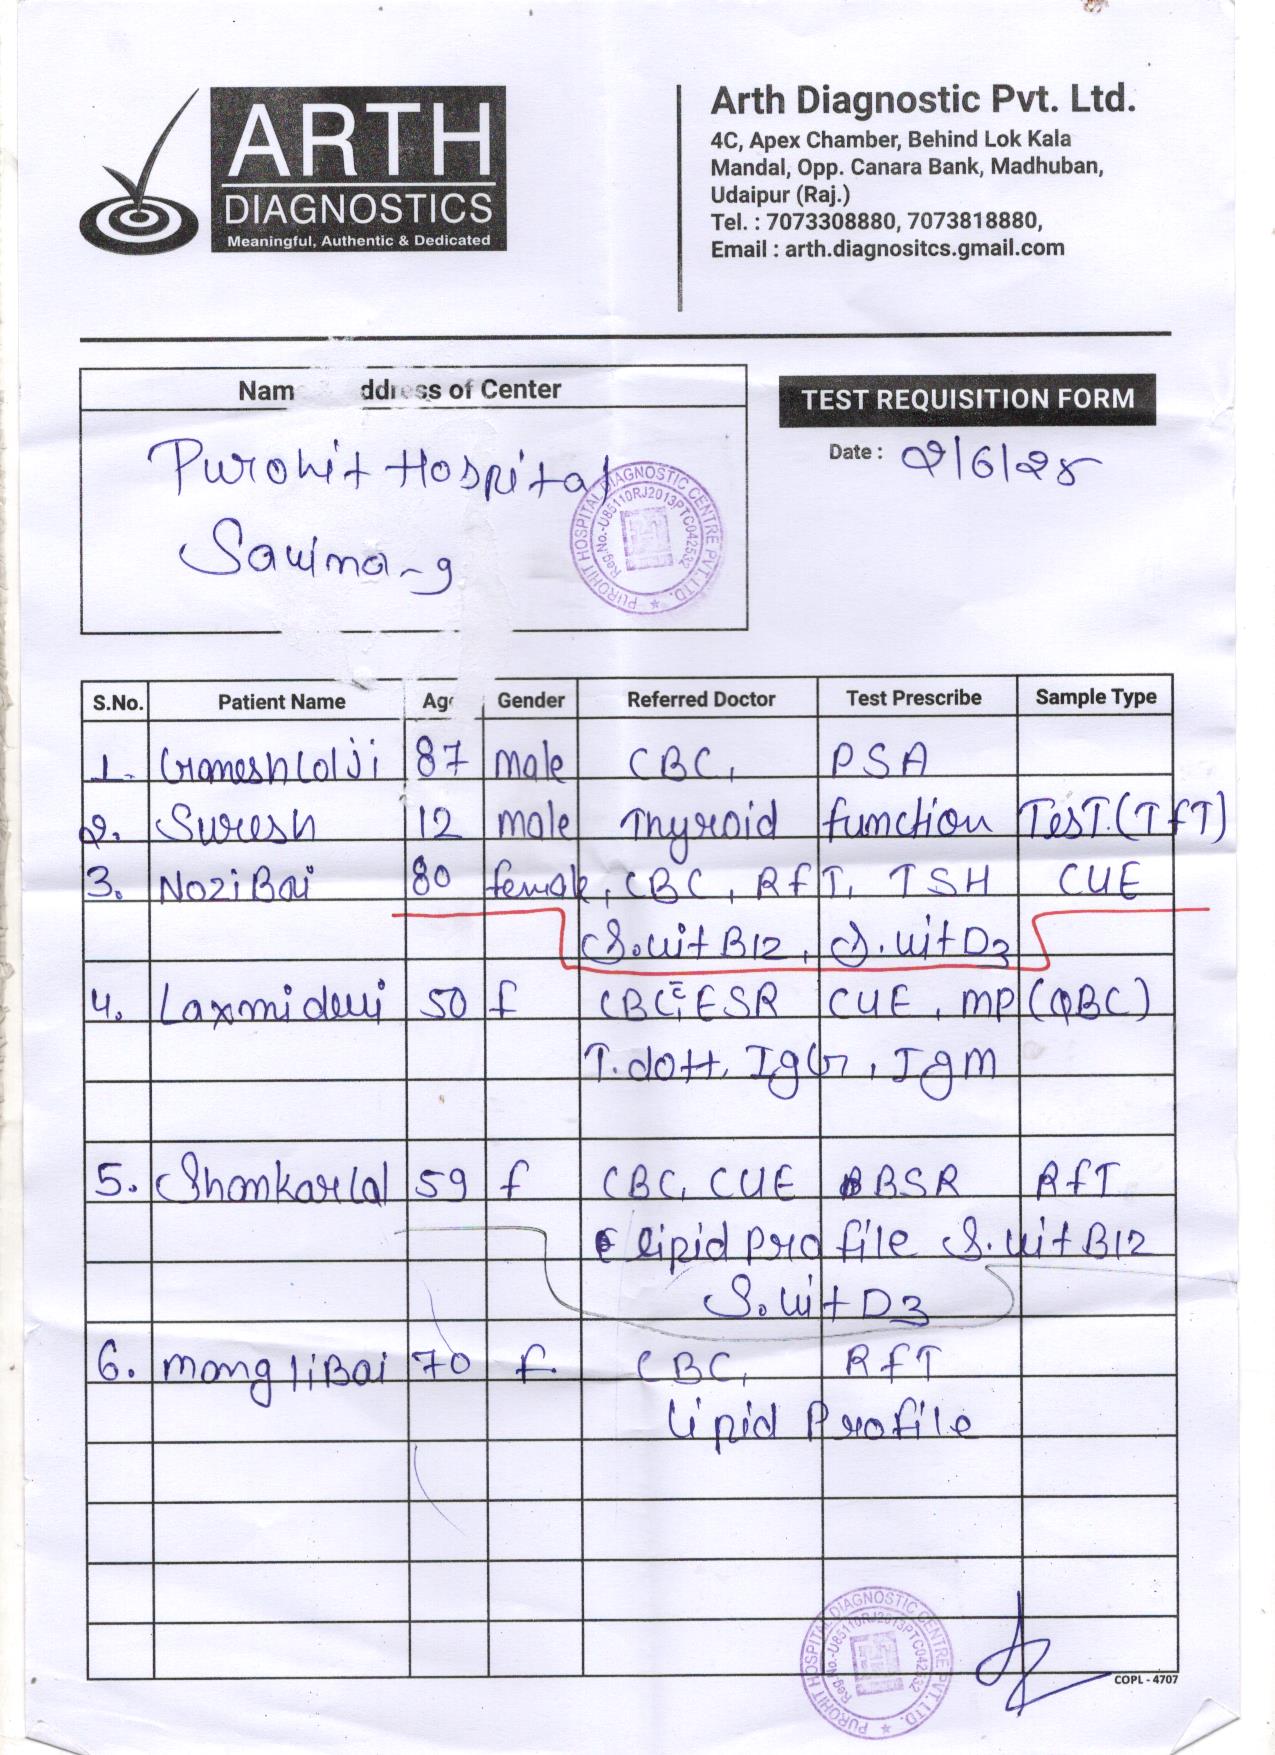 ARTH
DIAGNOSTICS
Meaningful, Authentic & Dedicated
Arth Diagnostic Pvt. Ltd.
4C, Apex Chamber, Behind Lok Kala
Mandal, Opp. Canara Bank, Madhuban,
Udaipur (Raj.)
Tel. : 7073308880, 7073818880,
Email : arth.diagnositcs.gmail.com
Nam ddress of Center
TEST REQUISITION FORM
Purohit Hospital
Savina-9
PUROHIT HOSPITAL DIAGNOSTIC CENTRE PVT. LTD.
Reg.No.-U85110RJ2013PTC042532
Date :
S.No. Patient Name Age Gender Referred Doctor Test Prescribe Sample Type
1. Ganeshlal Ji 87 male CBC, PSA
2. Suresh 12 male Thyroid function Test.(TfT)
3. Nozi Bai 80 female, CBC, RfT, TSH CUE
S.vit B12, S.vit D3
4. Laxmi devi 50 f CBC c̄ ESR CUE, MP (QBC)
T. dott, IgG, IgM
5. Shankarlal 59 f CBC, CUE BSR RfT
lipid profile S.vit B12
S.vit D3
6. mangli Bai 70 f. CBC, RfT
lipid Profile
PUROHIT HOSPITAL DIAGNOSTIC CENTRE PVT. LTD.
Reg.No.-U85110RJ2013PTC042532
COPL - 4707